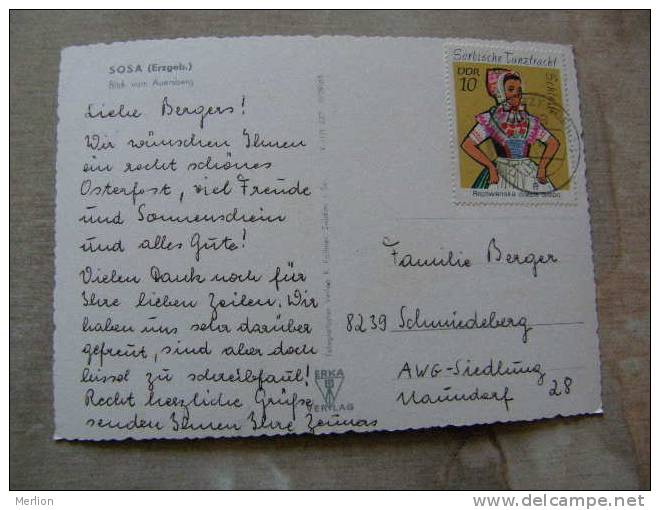 SOSA (Erzgeb.)
Blick vom Auersberg
Liebe Bergers!
Wir wünschen Ihnen
ein recht schönes
Osterfest, viel Freude
und Sonnenschein
und alles Gute!
Vielen Dank noch für
Ihre lieben Zeilen. Wir
haben uns sehr darüber
gefreut, sind aber doch
bissel zu schreibfaul!
Recht herzliche Grüße
senden Ihnen Ihre
ERKA
VERLAG
Sorbische Tanztracht
DDR
10
Schleife
Familie Berger
8239 Schmiedeberg
AWG-Siedlung
Naundorf 28
Merlion
www.delcampe.net